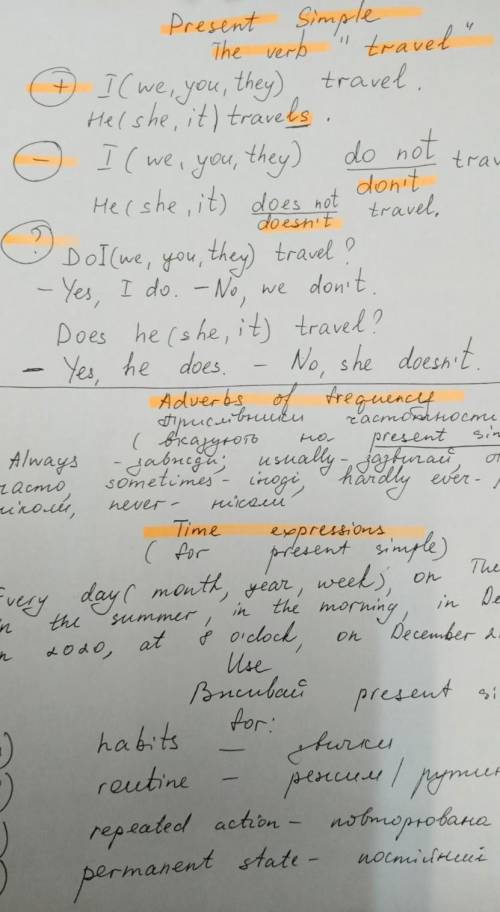 Present Simple
The verb "travel"
+ I (we, you, they) travel.
He (she, it) travels.
- I (we, you, they) do not trav
don't
He (she, it) does not travel.
doesn't
? Do I (we, you, they) travel?
- Yes, I do. - No, we don't.
Does he (she, it) travel?
- Yes, he does. - No, she doesn't.
Adverbs of frequency
Прислівники частотності
(вказують на present sim
Always - завжди; usually - зазвичай, o
часто sometimes - іноді, hardly ever -
ніколи, never - ніколи
Time expressions
(for present simple)
Every day (month, year, week), on The
in the summer, in the morning, in De
in 2020, at 8 o'clock, on December 2
Use
Вживай present si
for:
habits - звички
routine - режим / рутин
repeated action - повторювана
permanent state - постійний